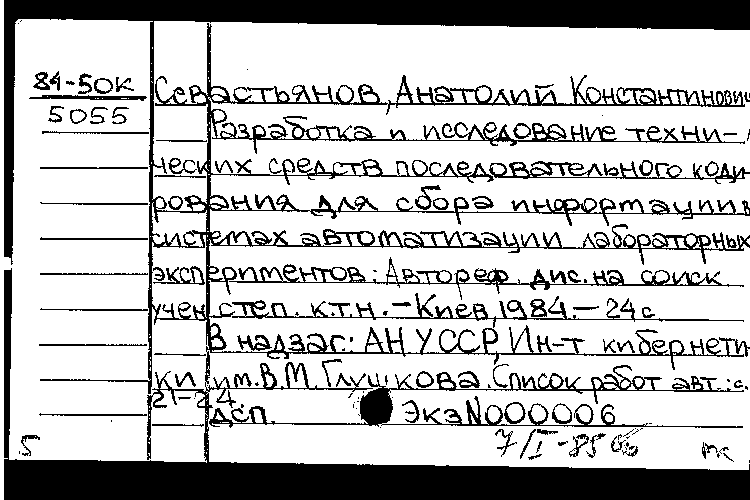 84-50К
5055
Севастьянов, Анатолий Константинович
Разработка и исследование техни-
ческих средств последовательного коди-
рования для сбора информации в
системах автоматизации лабораторных
экспериментов: Автореф. дис. на соиск
учен степ. к.т.н. - Киев, 1984. - 24с
В надзаг: АН УССР, Ин-т кибернети-
ки им. В.М. Глушкова. Список работ авт.: с.
21-24.
ДСП. Экз N000006
7/I-85
5